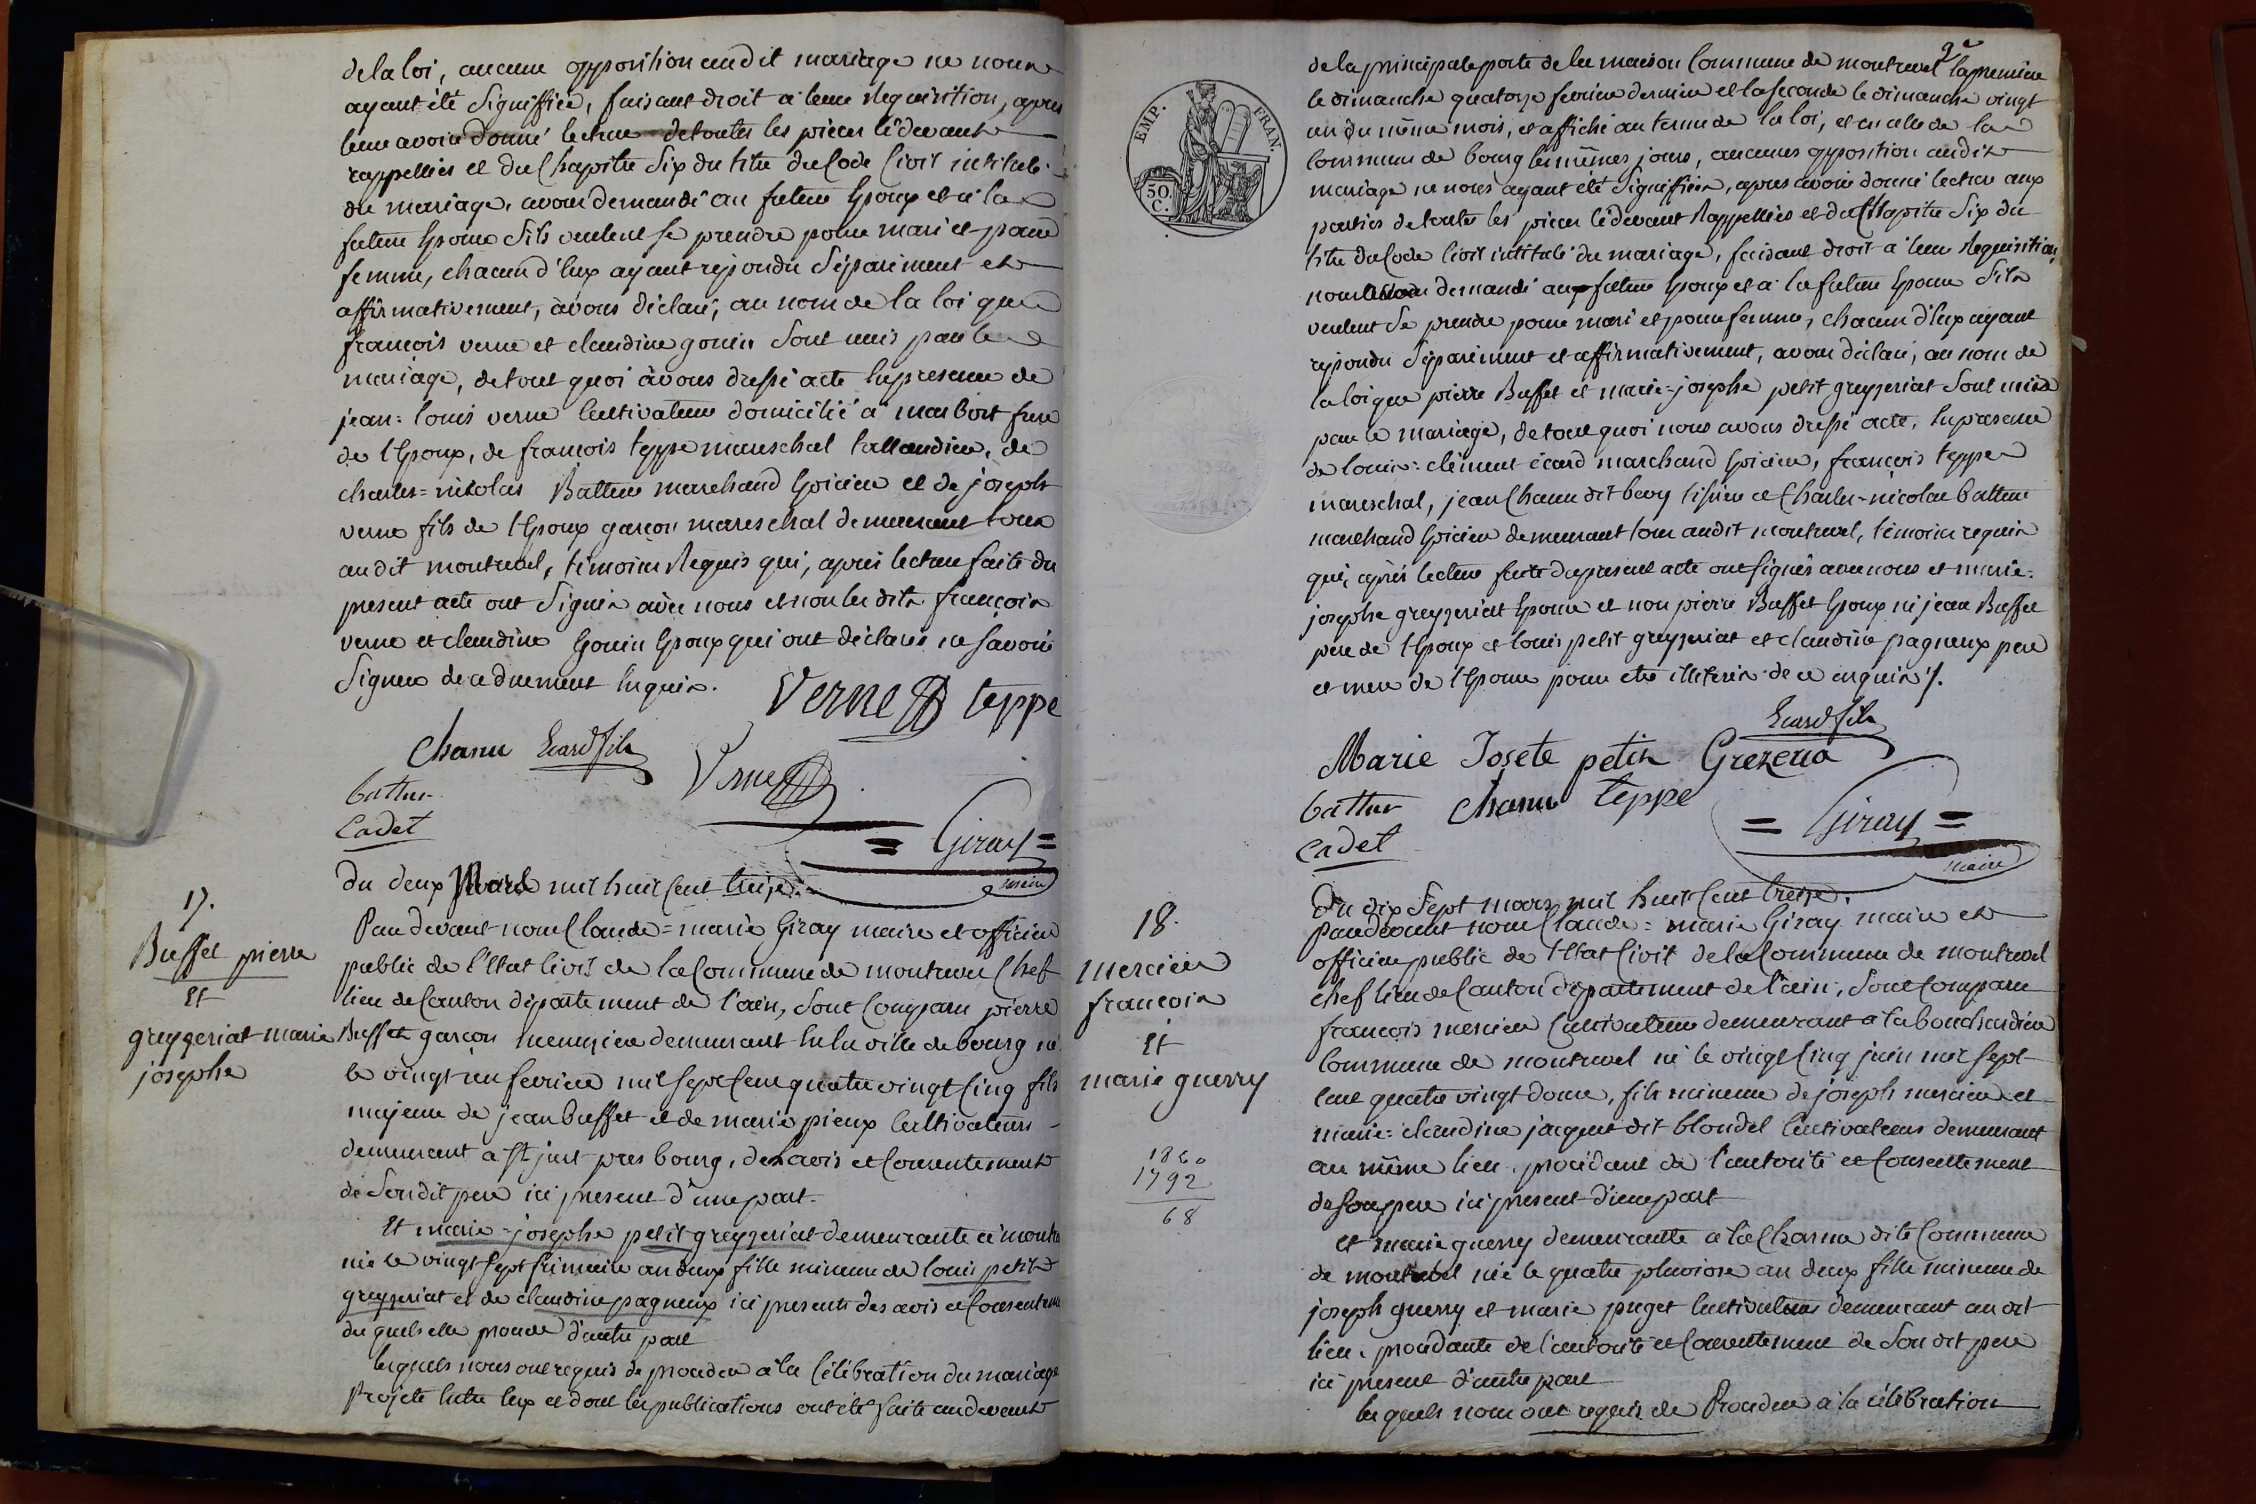 de la loi, aucune opposition audit mariage ne nous
ayant été Signiffiée, faisant droit a leur Requisition, apres
leur avoir donné lecture de toutes les pieces cidevant
rappellées et du Chapitre Six du titre du Code Civil intitulé
du mariage, avons demandé au futur Epoux et a la
future Epouse S'ils veulent se prendre pour mari et pour
femme, chacun d'Eux ayant repondu Séparément et
affirmativement, avons déclaré, au nom de la loi que
françois verne et claudine gonin Sont unis par le
mariage, de tout quoi avons dressé acte En presence de
jean=louis verne Cultivateur domicilié a marboz frere
de l'Epoux, de françois teppe mareschal tallandier, de
charles=nicolas Battur marchand Epicier et de joseph
verne fils de l'Epoux garçon mareschal demeurant tous
audit montrevel, témoins Requis qui, après lecture faite du
present acte ont Signés avec nous et non les dits françois
verne et claudine Gonin Epoux qui ont déclarés ne Savoir
Signer de ce duement Enquis.
Verne teppe
Chanu Ecard fils
Verne
battur
Cadet
= Giray =
maire
du deux Mars mil huit Cent treize.
17.
Buffet pierre
Et
greyzeriat marie
josephe
Par devant nous Claude=marie Giray maire et officier
public de l'Etat Civil de la Commune de montrevel Chef
lieu de Canton département de l'ain, Sont Comparu pierre
Buffet garçon menuisier demeurant En la ville de bourg né
le vingt un fevrier mil Sept Cent quatre vingt Cinq fils
majeur de jean buffet et de marie pieux Cultivateurs
demeurant a St just pres bourg, de l'avis et Consentement
de Son dit pere ici present d'une part.
Et marie-josephe petit greyzeriat demeurante a montre
née le vingt Sept frimaire an deux fille mineure de louis petit
greyzeriat et de claudine pagneux ici presents des avis et Consentem
du quels elle procede d'autre part
lesquels nous ont requis de proceder a la Célébration du mariage
Projeté Entre Eux et dont les publications ont été faites au devant
9e
EMP. FRAN.
50 C.
de la principale porte de la maison Commune de montrevel la premiere
le dimanche quatorze fevrier dernier et la seconde le dimanche vingt
un du même mois, et affiché au terme de la loi, et en celle de la
Commune de bourg les mêmes jours, aucunes opposition audit
mariage ne nous ayant été Signiffiée, apres avoir donné lecture aux
parties de toutes les pieces cidevant Rappellées et du Chapitre Six du
titre du Code Civil intitulé du mariage, faisant droit a leur Requisition,
nous avons demandé au futur Epoux et a la future Epouse S'ils
veulent Se prendre pour mari et pour femme, chacun d'Eux ayant
repondu Séparément et affirmativement, avons déclaré, au nom de
la loi que pierre Buffet et marie=josephe petit greyzeriat Sont unis
par le mariage, de tout quoi nous avons dressé acte, En presence
de louis=clément écard marchand Epicier, françois teppe
mareschal, jean Chanu dit bevy tissier et Charles-nicolas battur
marchand Epicier demeurant tous audit montrevel, témoins requis
qui, après lecture faite du present acte ont Signés avec nous et marie=
josephe greyzeriat Epouse et non pierre Buffet Epoux ni jean Buffet
pere de l'Epoux et louis petit greyzeriat et claudine pagneux pere
et mere de l'Epouse pour etre illiterés de ce enquis /.
Ecard fils
Marie Josete petit Grezeria
battur Chanu teppe
Cadet
= Giray =
maire
Du dix Sept mars mil huit Cent treize.
18.
mercier
françois
Et
marie guerry
1860
1792
68
Par devant nous Claude=marie Giray maire et
officier public de l'Etat Civil de la Commune de montrevel
chef lieu de Canton département de l'ain, Sont Comparu
françois mercier Cultivateur demeurant a la bouchardiere
Commune de montrevel né le vingt Cinq juin mil Sept
Cent quatre vingt douze, fils mineur de joseph mercier et
marie=claudine jacquet dit blondel Cultivateurs demeurant
au même lieu, procédant de l'autorité et Consentement
de Son pere ici present d'une part
et marie guerry demeurante a la Charme dite Commune
de montrevel née le quatre pluviose an deux fille mineure de
joseph guerry et marie puget Cultivateurs demeurant au dit
lieu, procédante de l'autorité et Consentement de Son dit pere
ici present d'autre part
les quels nous ont requis de Proceder a la célébration